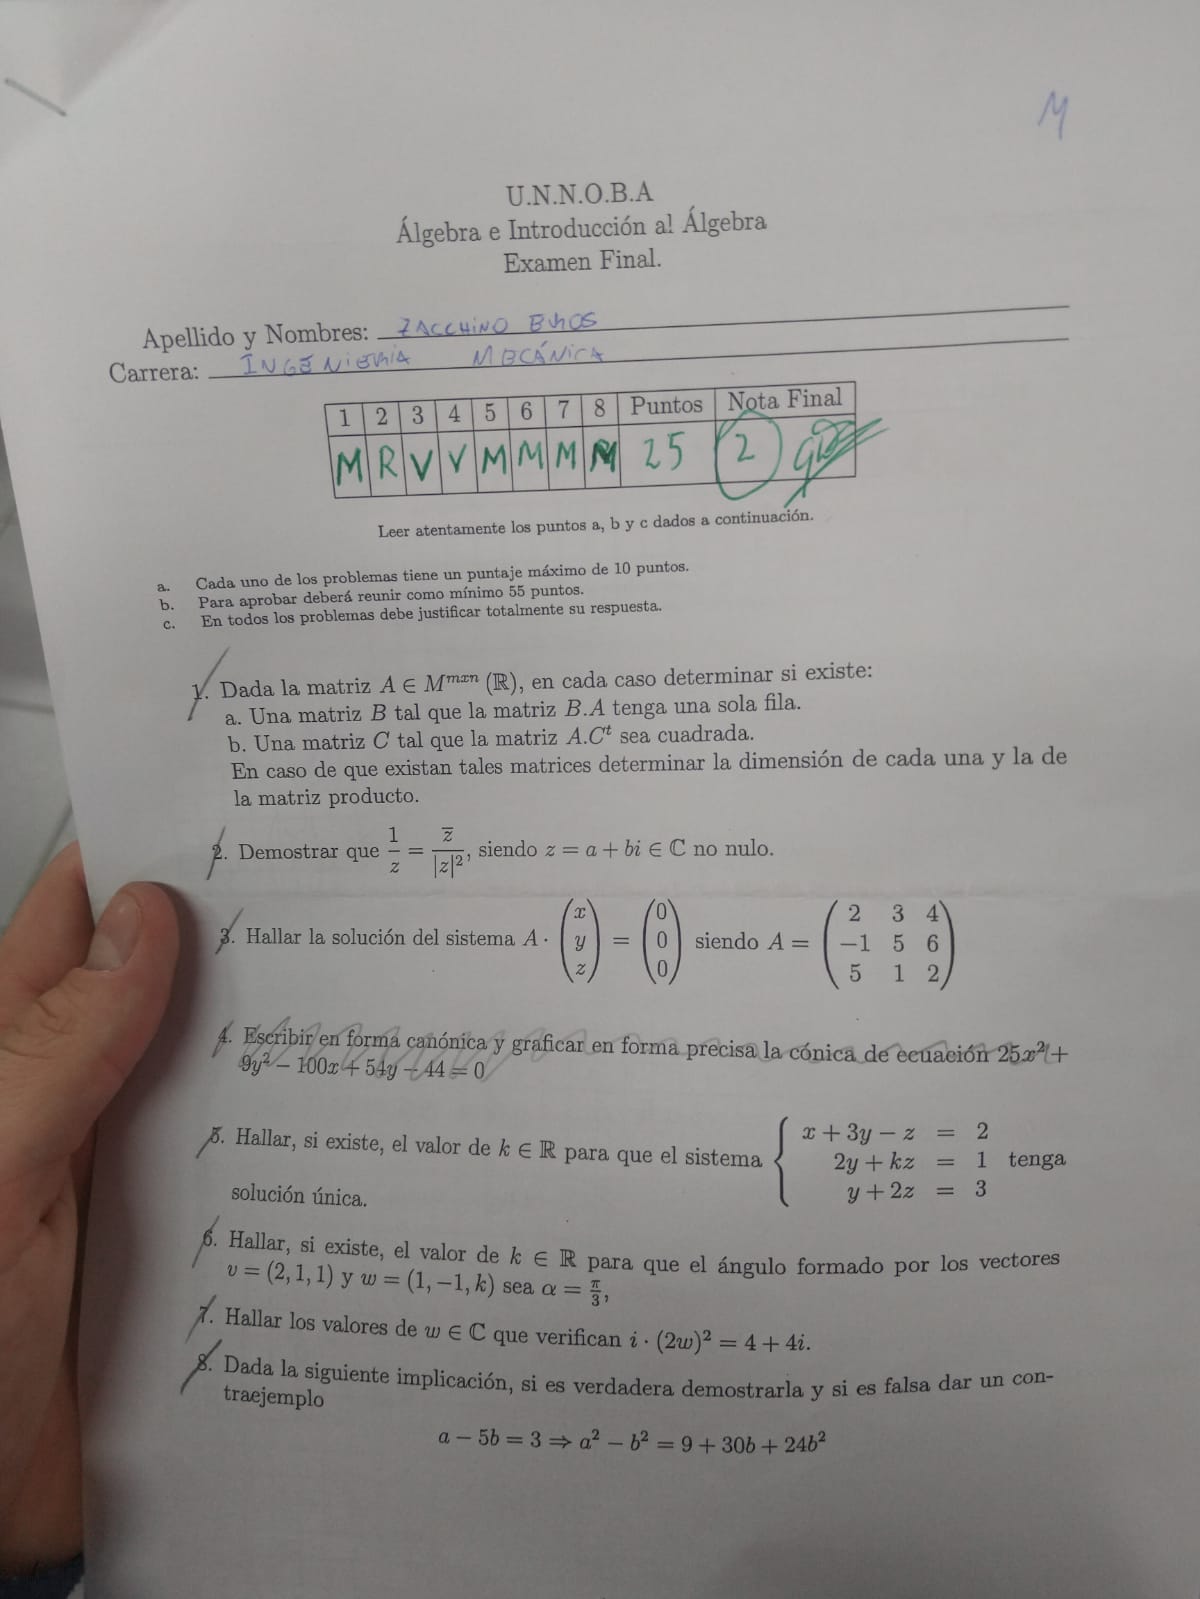 M
U.N.N.O.B.A
Álgebra e Introducción al Álgebra
Examen Final.
Apellido y Nombres: ZACCHINO
Carrera: INGENIERIA MECÁNICA
1 2 3 4 5 6 7 8 Puntos Nota Final
M R V V M M M M 25 2
Leer atentamente los puntos a, b y c dados a continuación.
a. Cada uno de los problemas tiene un puntaje máximo de 10 puntos.
b. Para aprobar deberá reunir como mínimo 55 puntos.
c. En todos los problemas debe justificar totalmente su respuesta.
1. Dada la matriz A ∈ M^{mxn} (ℝ), en cada caso determinar si existe:
a. Una matriz B tal que la matriz B.A tenga una sola fila.
b. Una matriz C tal que la matriz A.C^t sea cuadrada.
En caso de que existan tales matrices determinar la dimensión de cada una y la de
la matriz producto.
2. Demostrar que 1/z = z̅/|z|², siendo z = a + bi ∈ ℂ no nulo.
3. Hallar la solución del sistema A · (x y z) = (0 0 0) siendo A = (2 3 4 / −1 5 6 / 5 1 2)
4. Escribir en forma canónica y graficar en forma precisa la cónica de ecuación 25x² +
9y² − 100x + 54y − 44 = 0
5. Hallar, si existe, el valor de k ∈ ℝ para que el sistema { x + 3y − z = 2
2y + kz = 1 tenga
y + 2z = 3
solución única.
6. Hallar, si existe, el valor de k ∈ ℝ para que el ángulo formado por los vectores
v = (2, 1, 1) y w = (1, −1, k) sea α = π/3,
7. Hallar los valores de w ∈ ℂ que verifican i · (2w)² = 4 + 4i.
8. Dada la siguiente implicación, si es verdadera demostrarla y si es falsa dar un con-
traejemplo
a − 5b = 3 ⇒ a² − b² = 9 + 30b + 24b²